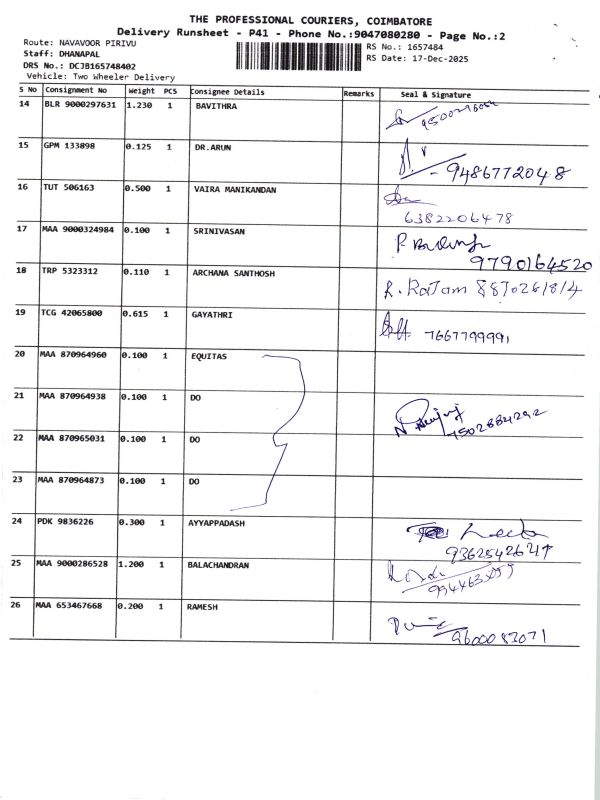 THE PROFESSIONAL COURIERS, COIMBATORE
Delivery Runsheet - P41 - Phone No.:9047080280 - Page No.:2
Route: NAVAVOOR PIRIVU
RS No.: 1657484
Staff: DHANAPAL
RS Date: 17-Dec-2025
DRS No.: DCJB165748402
Vehicle: Two Wheeler Delivery
S No Consignment No Weight PCS Consignee Details Remarks Seal & Signature
14 BLR 9000297631 1.230 1 BAVITHRA
15 GPM 133898 0.125 1 DR.ARUN
9486772048
16 TUT 506163 0.500 1 VAIRA MANIKANDAN
6382206478
17 MAA 9000324984 0.100 1 SRINIVASAN
9790164520
18 TRP 5323312 0.110 1 ARCHANA SANTHOSH
R. Rajam
19 TCG 42065800 0.615 1 GAYATHRI
20 MAA 870964960 0.100 1 EQUITAS
21 MAA 870964938 0.100 1 DO
7502884292
22 MAA 870965031 0.100 1 DO
23 MAA 870964873 0.100 1 DO
24 PDK 9836226 0.300 1 AYYAPPADASH
25 MAA 9000286528 1.200 1 BALACHANDRAN
26 MAA 653467668 0.200 1 RAMESH
9600083071